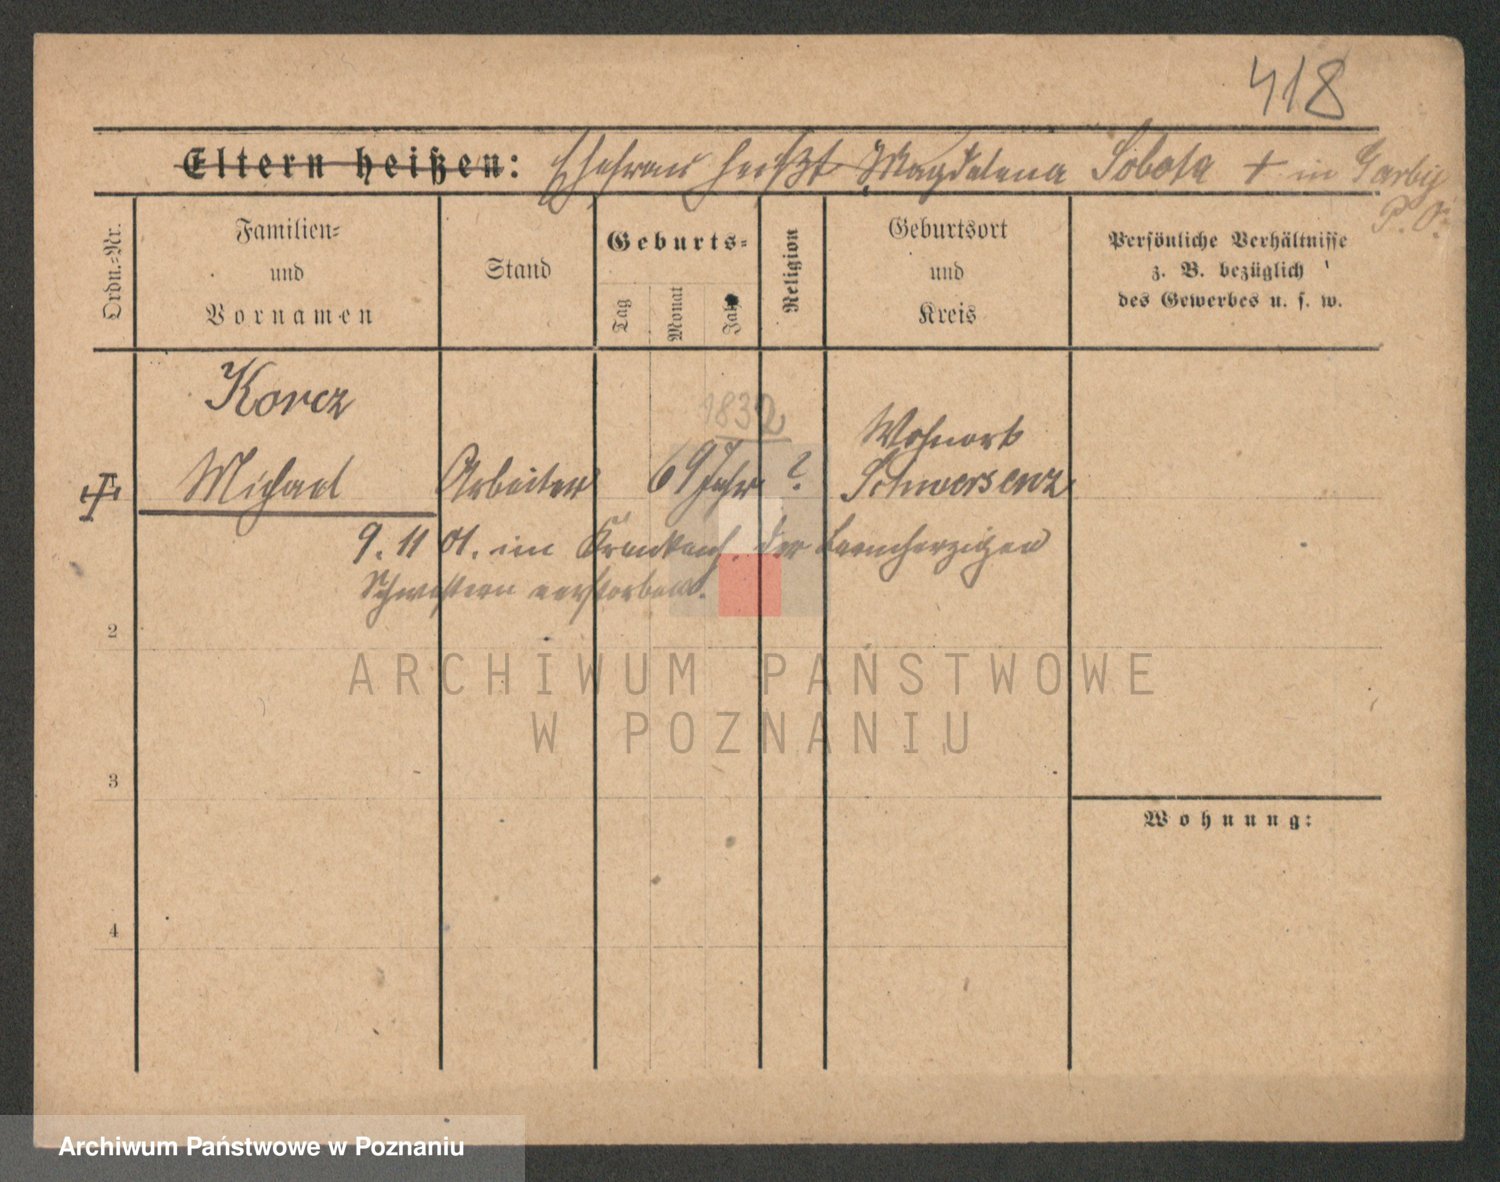 418
Eltern heißen: Ehefrau heißt Magdalena Sobota + in Garby
P. O.
Ordn.-Nr.
Familien-
und
Vornamen
Stand
Geburts-
Tag
Monat
Jahr
Religion
Geburtsort
und
Kreis
Persönliche Verhältnisse
z. B. bezüglich
des Gewerbes u. s. w.
Korcz
1832
Wohnort
Michael Arbeiter 69 Jahr ? Schwersenz
9. 11 01. im Krankenh. der barmherzigen
Schwestern verstorben.
2
ARCHIWUM PAŃSTWOWE
W POZNANIU
3
Wohnung:
4
Archiwum Państwowe w Poznaniu